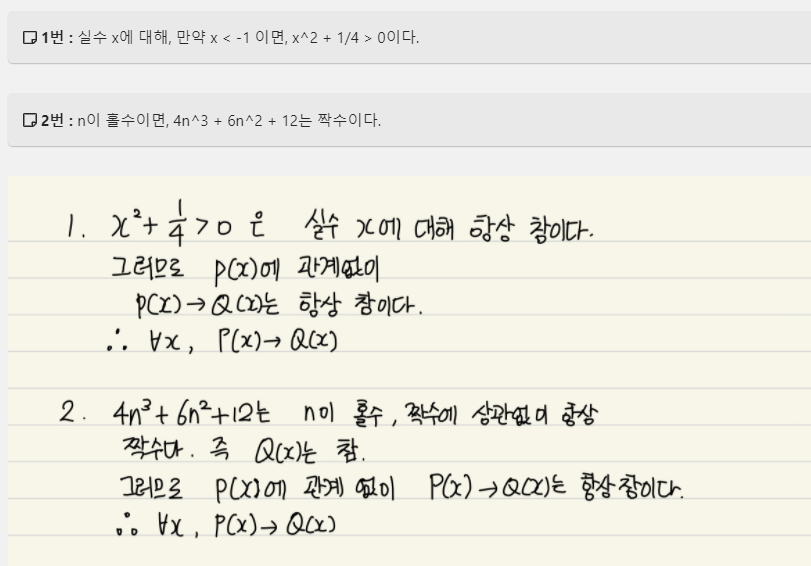 1번 : 실수 x에 대해, 만약 x < -1 이면, x^2 + 1/4 > 0이다.
2번 : n이 홀수이면, 4n^3 + 6n^2 + 12는 짝수이다.
1. x² + 1/4 > 0 은 실수 x에 대해 항상 참이다.
그러므로 p(x)에 관계없이
p(x) → Q(x)는 항상 참이다.
∴ ∀x, P(x) → Q(x)
2. 4n³ + 6n² + 12는 n이 홀수, 짝수에 상관없이 항상
짝수다. 즉 Q(x)는 참.
그러므로 P(x)에 관계 없이 P(x) → Q(x)는 항상 참이다.
∴ ∀x, P(x) → Q(x)